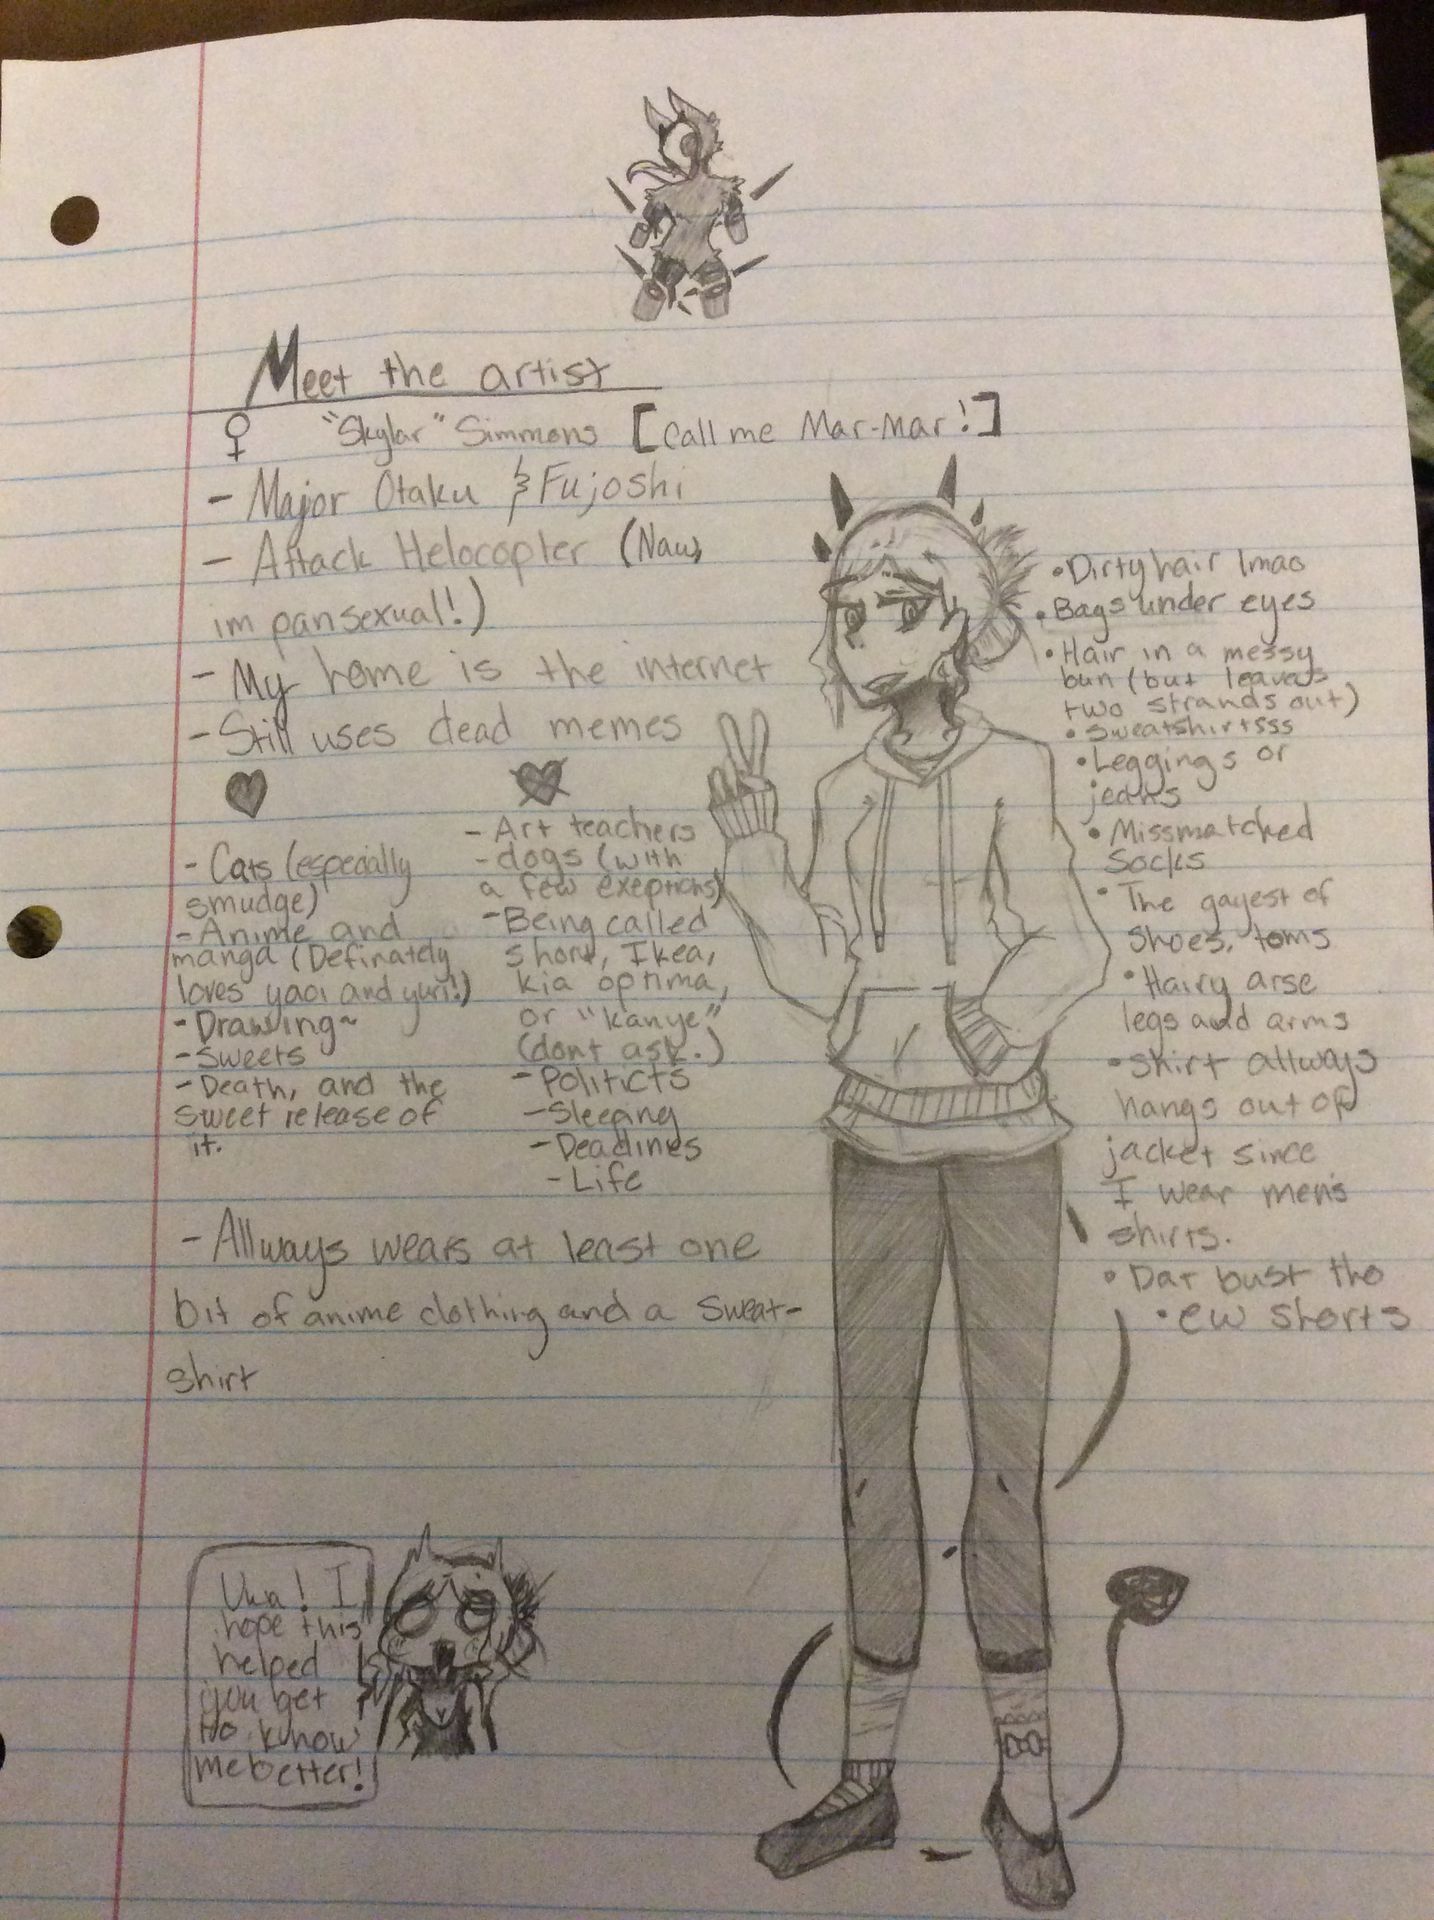 Meet the artist
♀ "Skylar" Simmons [Call me Mar-Mar!]
- Major Otaku & Fujoshi
- Attack Helocopter (Naw,
im pansexual!)
- My home is the internet
- Still uses dead memes
- Cats (especially
smudge)
- Anime and
manga (Definately
loves yaoi and yuri!)
- Drawing~
- Sweets
- Death, and the
sweet release of
it.
- Art teachers
- dogs (with
a few exeptions)
- Being called
short, Ikea,
kia optima,
or "kanye"
(dont ask.)
- Politicts
- Sleeping
- Deadlines
- Life
- Allways wears at least one
bit of anime clothing and a sweat-
shirt
• Dirty hair lmao
• Bags under eyes
• Hair in a messy
bun (but leaves
two strands out)
• Sweatshirtsss
• Leggings or
jeans
• Missmatched
socks
• The gayest of
shoes, toms
• Hairy arse
legs and arms
• Shirt allways
hangs out of
jacket since
I wear mens
shirts.
• Dat bust tho
• ew shorts
! I
hope this
helped
you get
to know
me better!